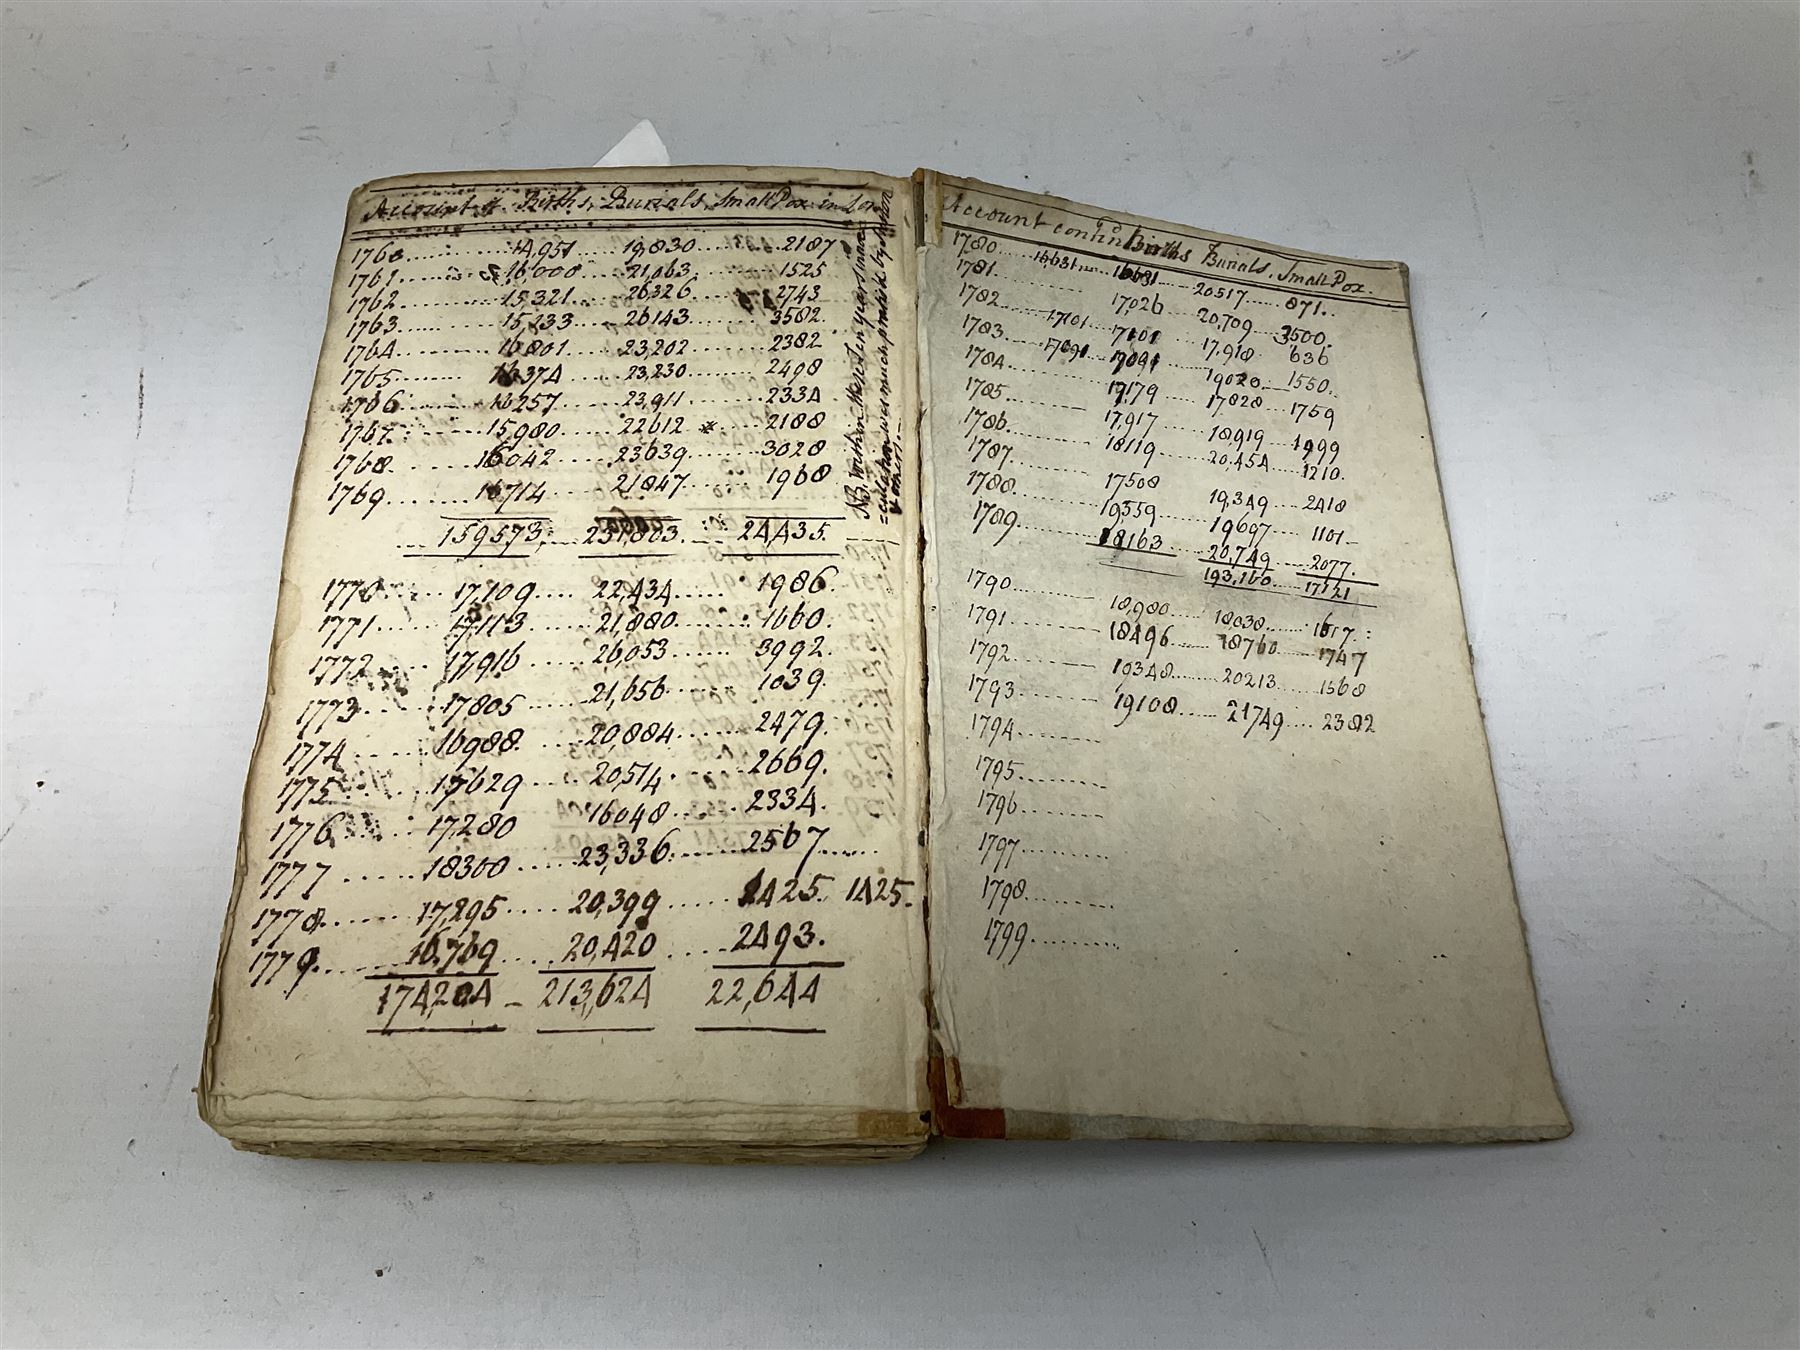 Account of Births, Burials, Small Pox in Lon
1760 14,951 19,830 2187
1761 16,000 21,063 1525
1762 15,321 26,326 2743
1763 15,233 26143 3582
1764 16801 23,202 2382
1765 16374 23,230 2498
1766 16257 23,911 2334
1767 15,980 22612 * 2188
1768 16042 23639 3028
1769 16714 21847 1968
159573 231,803 24,435
NB. within these ten years inno=
=culation was much practis'd by Sutton
& others.
1770 17,109 22,434 1986
1771 17,113 21,880 1660
1772 17,916 26,053 3992
1773 17805 21,656 1039
1774 16988 20,884 2479
1775 17629 20,514 2669
1776 17,280 16048 2334
1777 18300 23,336 2567
1778 17,295 20,399 2425 1425
1779 16,769 20,420 2493
174,204 213,624 22,644
Account continu Births Burials. Small Pox.
1780 16,631 16631 20517 871
1781 17,026 20,709 3500
1782 17101 17101 17,918 636
1783 17091 17091 19029 1550
1784 17179 17828 1759
1785 17,917 18,919 1999
1786 18119 20,454 1210
1787 17508 19,349 2418
1788 19559 19697 1101
1789 18163 20,749 2077
193,160 17121
1790 18,980 18,038 1617
1791 18496 18760 1747
1792 19348 20213 1568
1793 19108 21749 2382
1794
1795
1796
1797
1798
1799